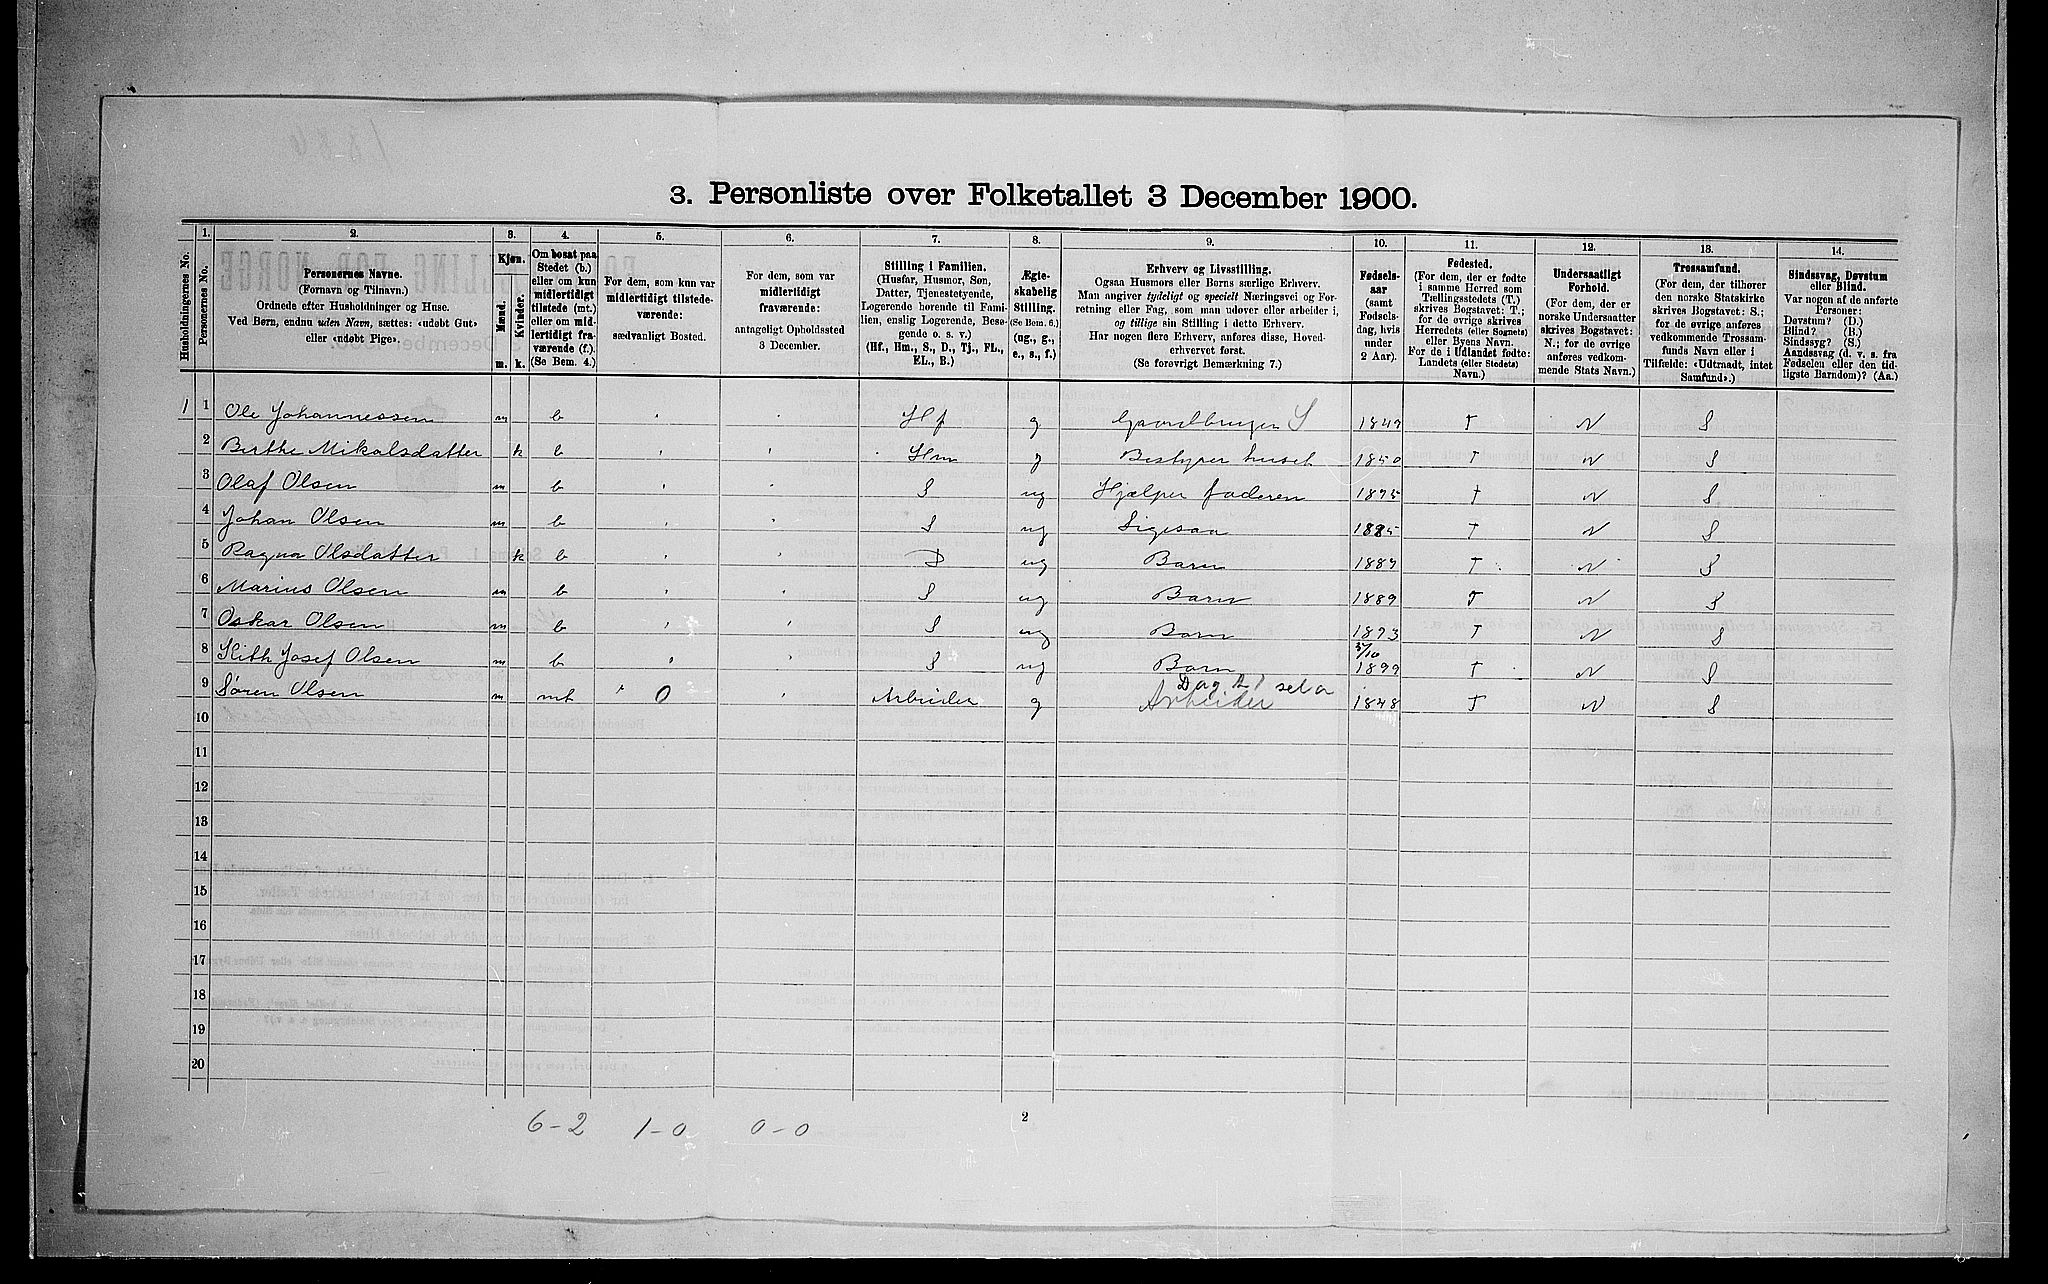 3. Personliste over Folketallet 3 December 1900.
Husholdningernes No.
1.
Personernes No.
2.
Personernes Navne.
(Fornavn og Tilnavn.)
Ordnede efter Husholdninger og Huse.
Ved Børn, endnu uden Navn, sættes: «udøbt Gut»
eller «udøbt Pige».
3.
Kjøn.
Mænd.
Kvinder.
m. k.
4.
Om bosat paa
Stedet (b.)
eller om kun
midlertidigt
tilstede (mt.)
eller om mid-
lertidigt fra-
værende (f.).
(Se Bem. 4.)
5.
For dem, som kun var
midlertidigt tilstede-
værende:
sædvanligt Bosted.
6.
For dem, som var
midlertidigt
fraværende:
antageligt Opholdssted
3 December.
7.
Stilling i Familien.
(Husfar, Husmor, Søn,
Datter, Tjenestetyende,
Logerende hørende til Fami-
lien, enslig Logerende, Besø-
gende o. s. v.)
(Hf., Hm., S., D., Tj., FL.,
EL., B.)
8.
Ægte-
skabelig
Stilling.
(Se Bem. 6.)
(ug., g.,
e., s., f.)
9.
Erhverv og Livsstilling.
Ogsaa Husmors eller Børns særlige Erhverv.
Man angiver tydeligt og specielt Næringsvei og For-
retning eller Fag, som man udøver eller arbeider i,
og tillige sin Stilling i dette Erhverv.
Har nogen flere Erhverv, anføres disse, Hoved-
erhvervet først.
(Se forøvrigt Bemærkning 7.)
10.
Fødsels-
aar
(samt
Fødsels-
dag, hvis
under
2 Aar).
11.
Fødested.
(For dem, der er fødte
i samme Herred som
Tællingsstedets (T.)
skrives Bogstavet: T.;
for de øvrige skrives
Herredets (eller Sognets)
eller Byens Navn.
For de i Udlandet fødte:
Landets (eller Stedets)
Navn.)
12.
Undersaatligt
Forhold.
(For dem, der er
norske Undersaatter
skrives Bogstavet:
N.; for de øvrige
anføres vedkom-
mende Stats Navn.)
13.
Trossamfund.
(For dem, der tilhører
den norske Statskirke
skrives Bogstavet: S.;
for de øvrige anføres
vedkommende Trossam-
funds Navn eller i
Tilfælde: «Udtraadt, intet
Samfund».)
14.
Sindssvag, Døvstum
eller Blind.
Var nogen af de anførte
Personer:
Døvstum? (D.)
Blind? (B.)
Sindssyg? (S.)
Aandssvag (d. v. s. fra
Fødselen eller den tid-
ligste Barndom)? (Aa.)
1 1 Ole Johannessen m b Hf g Gaardbruger S 1849 T N S
2 Birthe Mikalsdatter k b Hm g Bestyrer huset 1850 T N S
3 Olaf Olsen m b S ug Hjælper faderen 1875 T N S
4 Johan Olsen m b S ug Ligesaa 1885 T N S
5 Ragna Olsdatter k b D ug Barn 1887 T N S
6 Marius Olsen m b S ug Barn 1889 T N S
7 Oskar Olsen m b S ug Barn 1893 T N S
8 Josef Olsen m b S ug Barn 1899 T N S
9 Søren Olsen m mt O Arbeider g Arbeider 1848 T N S
10
11
12
13
14
15
16
17
18
19
20
6-2 1-0 0-0
2